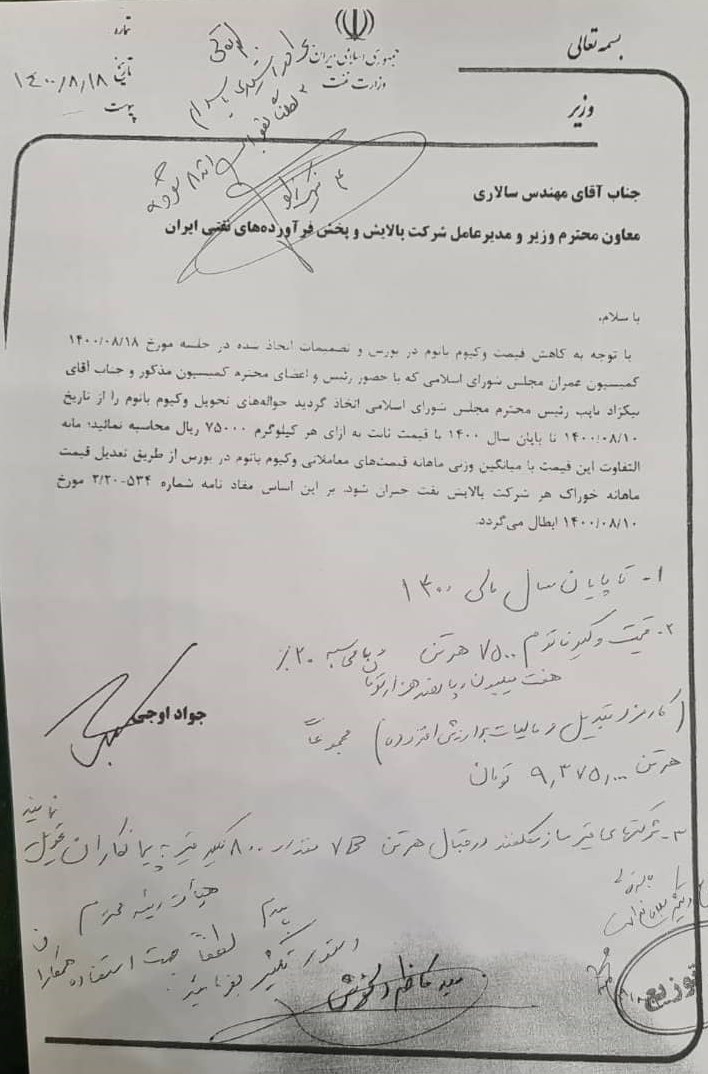 بسمه تعالی
جمهوری اسلامی ایران
وزارت نفت
وزیر
شماره
تاریخ ۱۴۰۰/۸/۱۸
پیوست
جناب آقای مهندس سالاری
معاون محترم وزیر و مدیرعامل شرکت پالایش و پخش فرآورده‌های نفتی ایران
با سلام،
با توجه به کاهش قیمت وکیوم باتوم در بورس و تصمیمات اتخاذ شده در جلسه مورخ ۱۴۰۰/۰۸/۱۸
کمیسیون عمران مجلس شورای اسلامی که با حضور رئیس و اعضای محترم کمیسیون مذکور و جناب آقای
نیکزاد نایب رئیس محترم مجلس شورای اسلامی اتخاذ گردید حواله‌های تحویل وکیوم باتوم را از تاریخ
۱۴۰۰/۰۸/۱۰ تا پایان سال ۱۴۰۰ با قیمت ثابت به ازای هر کیلوگرم ۷۵۰۰۰ ریال محاسبه نمائید؛ مابه
التفاوت این قیمت با میانگین وزنی ماهانه قیمت‌های معاملاتی وکیوم باتوم در بورس از طریق تعدیل قیمت
ماهانه خوراک هر شرکت پالایش نفت جبران شود. بر این اساس مفاد نامه شماره ۵۳۴-۲/۲۰ مورخ
۱۴۰۰/۰۸/۱۰ ابطال می‌گردد.
جواد اوجی
۱- تا پایان سال مالی ۱۴۰۰
۲- قیمت وکیوم باتوم ۷۵۰۰ هر تن با محاسبه ۲۰٪
هفت میلیون و پانصد هزار تومان
(کارمزد و تبدیل و مالیات بر ارزش افزوده) مجموعاً
هر تن ۹,۳۷۵,۰۰۰ تومان
۳- شرکتهای قیرساز متعهدند در قبال هر تن VB مقدار ۸۰۰ کیلو قیر به پیمانکاران تحویل نمایند
هیأت رئیسه محترم
لطفاً جهت استفاده همکاران
دستور تکثیر بفرمائید
سید کاظم دلخوش
توزیع